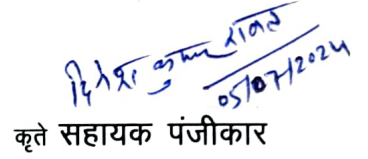 दिनेश कुमार रावत
05/07/2024
कृते सहायक पंजीकार